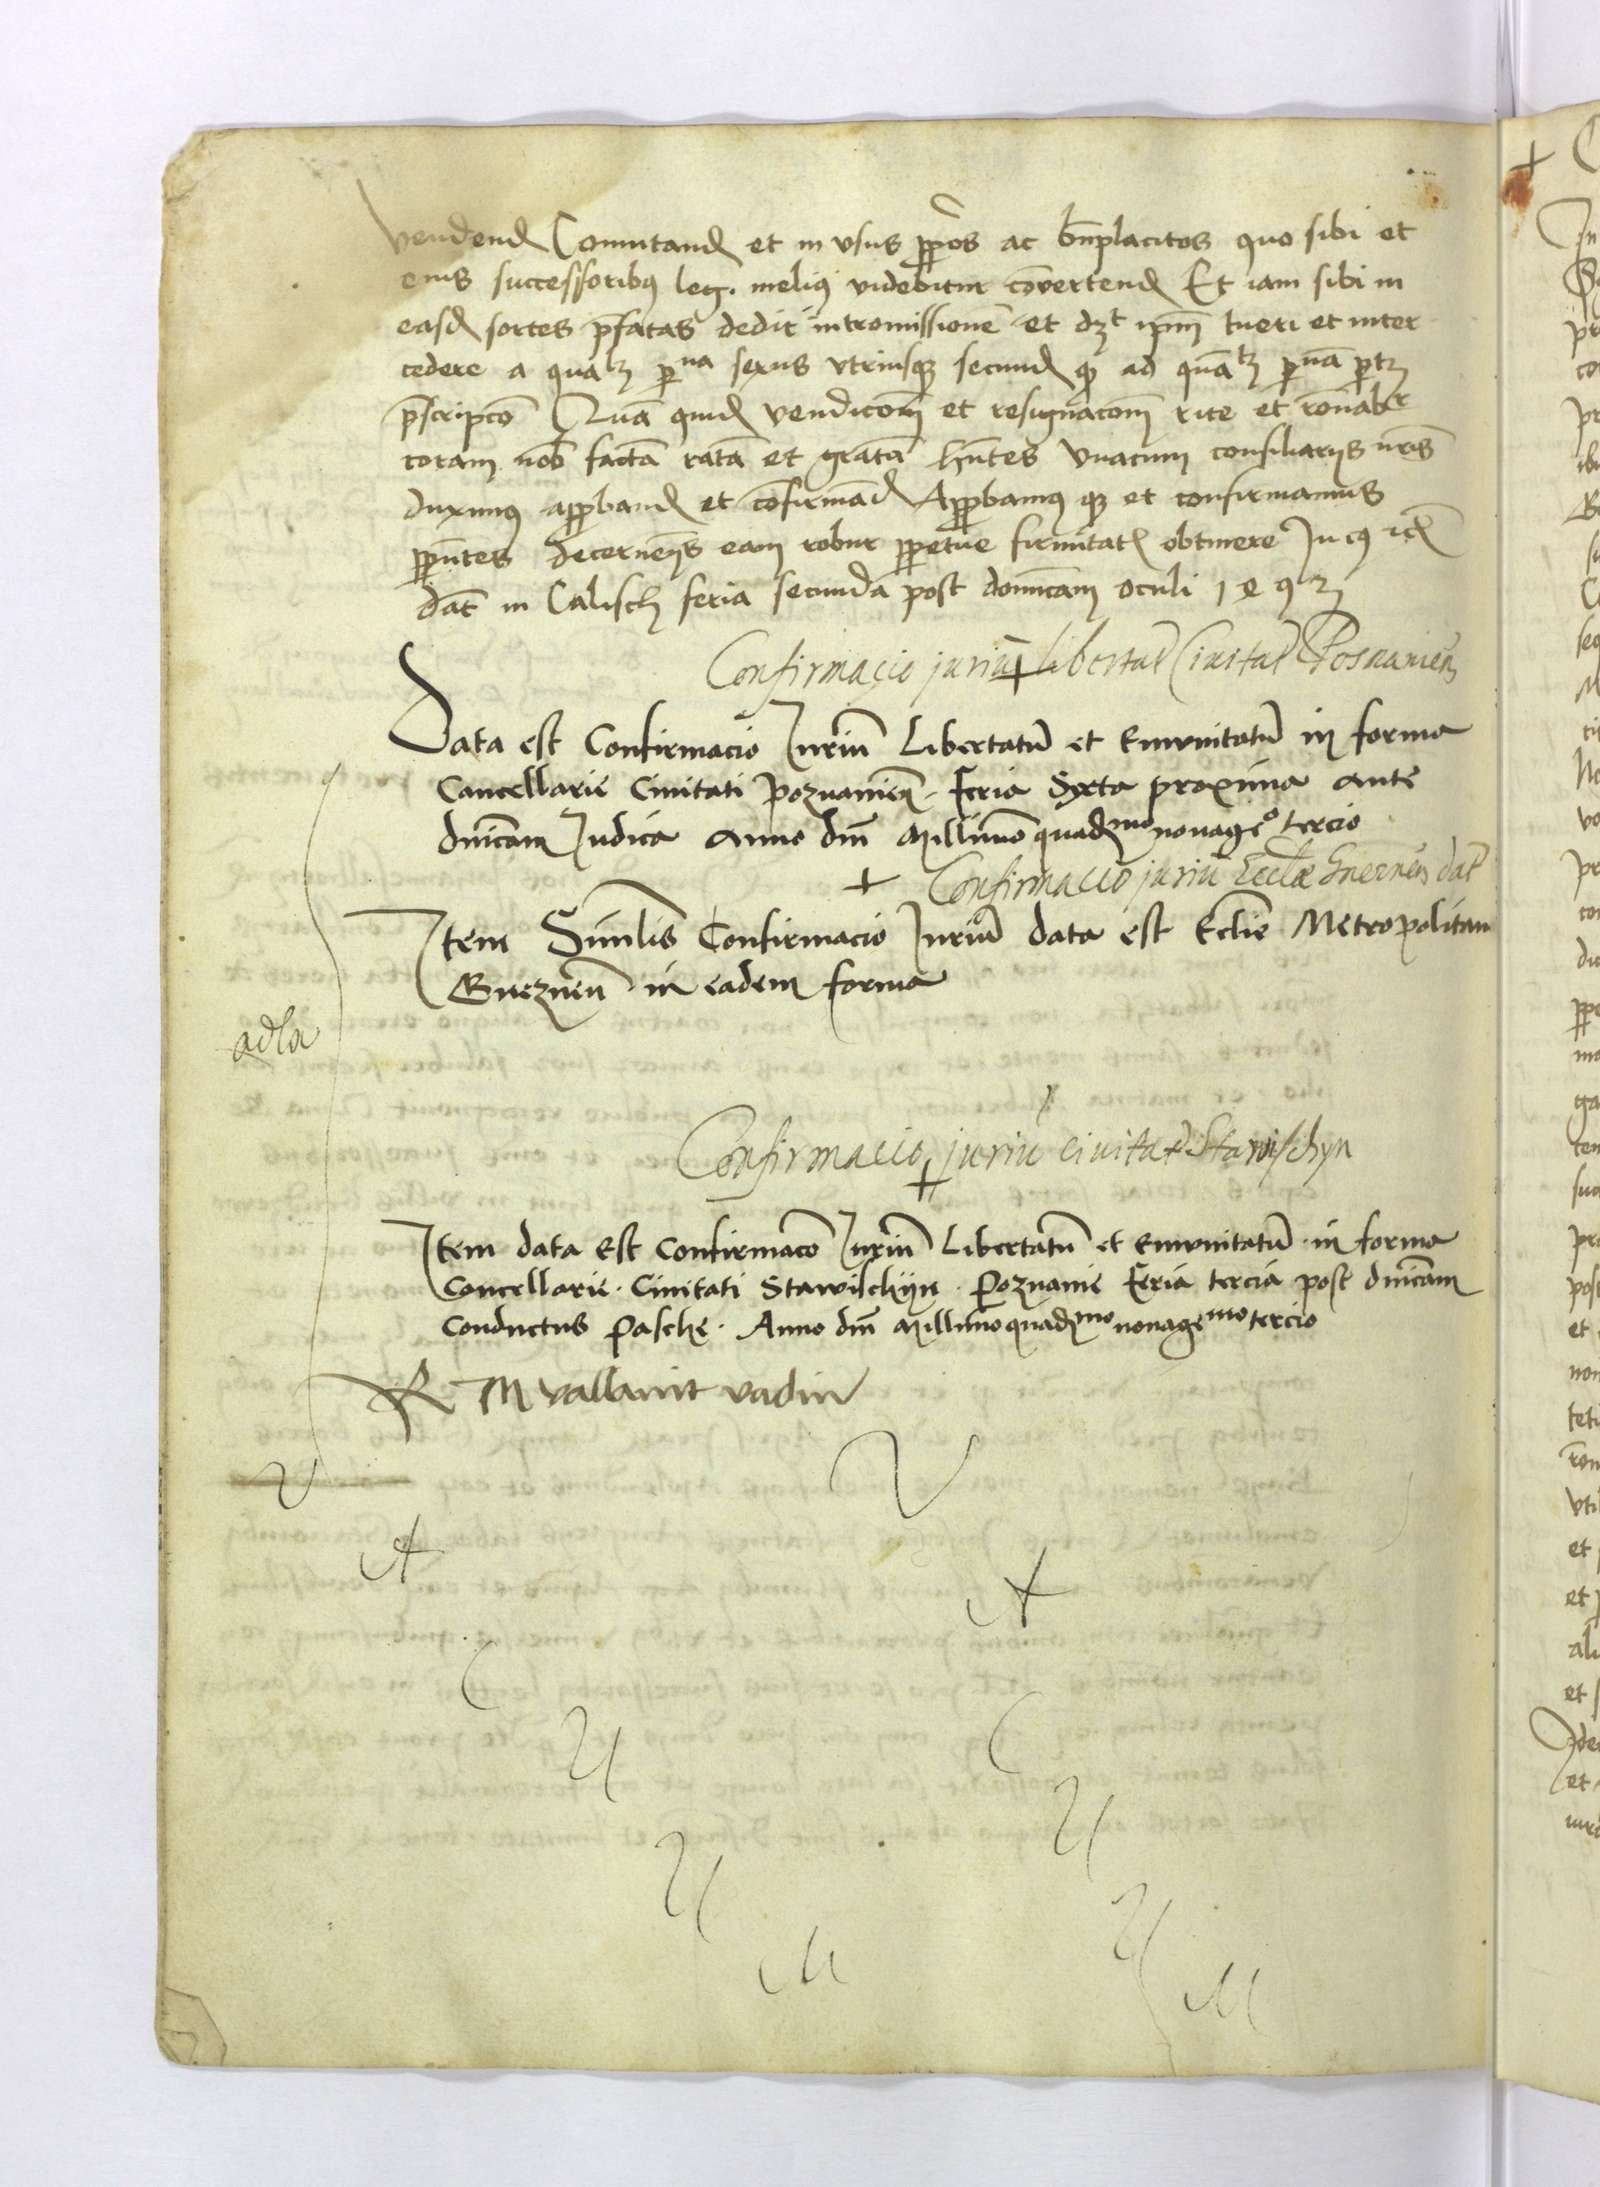 vendend Comutand et in vsus ppos ac bnplacitos quo sibi et
eius successoribus leg. melius videbitur covertend Et iam sibi in
easd sortes pfatas dedit intromissione et dzt ipm tueri et inter
cedere a qualz pna sexus vtriusqz secund qd ad quatz
pscripto Qua quid vendicom et resignacom rite et ronabr
coram nob facta rata et grata hntes vnacum consiliariis nris
duximus approband et cofirmad Approbamus qz et confirmamus
pputes decernens eam robur ppetue firmitatis obtinere In cuius rei
dat in Calisch feria secunda post domicam oculi 1493
Confirmacio juriu libertat Ciuitat Posnanien
Data est Confirmacio Iuriu Libertatu et Emvnitatu in forma
Cancellarie Ciuitati Poznanien. Feria Sexta proxima ante
dnicam Iudica Anno dni Millimo quadmo nonageo tercio
+ Confirmacio juriu Eccliae Gneznen dat
Item Similis Confirmacio Iuriu data est Eclie Metropolitan
Gneznen in eadem forma
adla
Confirmacio juriu ciuitat Stawischyn
Item data Est Confirmaco Iuriu Libertatu et Emvnitatu in forma
Cancellarie. Ciuitati Stawischijn. Poznanie Feria tercia post dnicam
Conductus Pasche. Anno dni Millimo quadmo nonagemo tercio
R M vallauit vadiu
V V
A A
C
U C
U U
U
M M